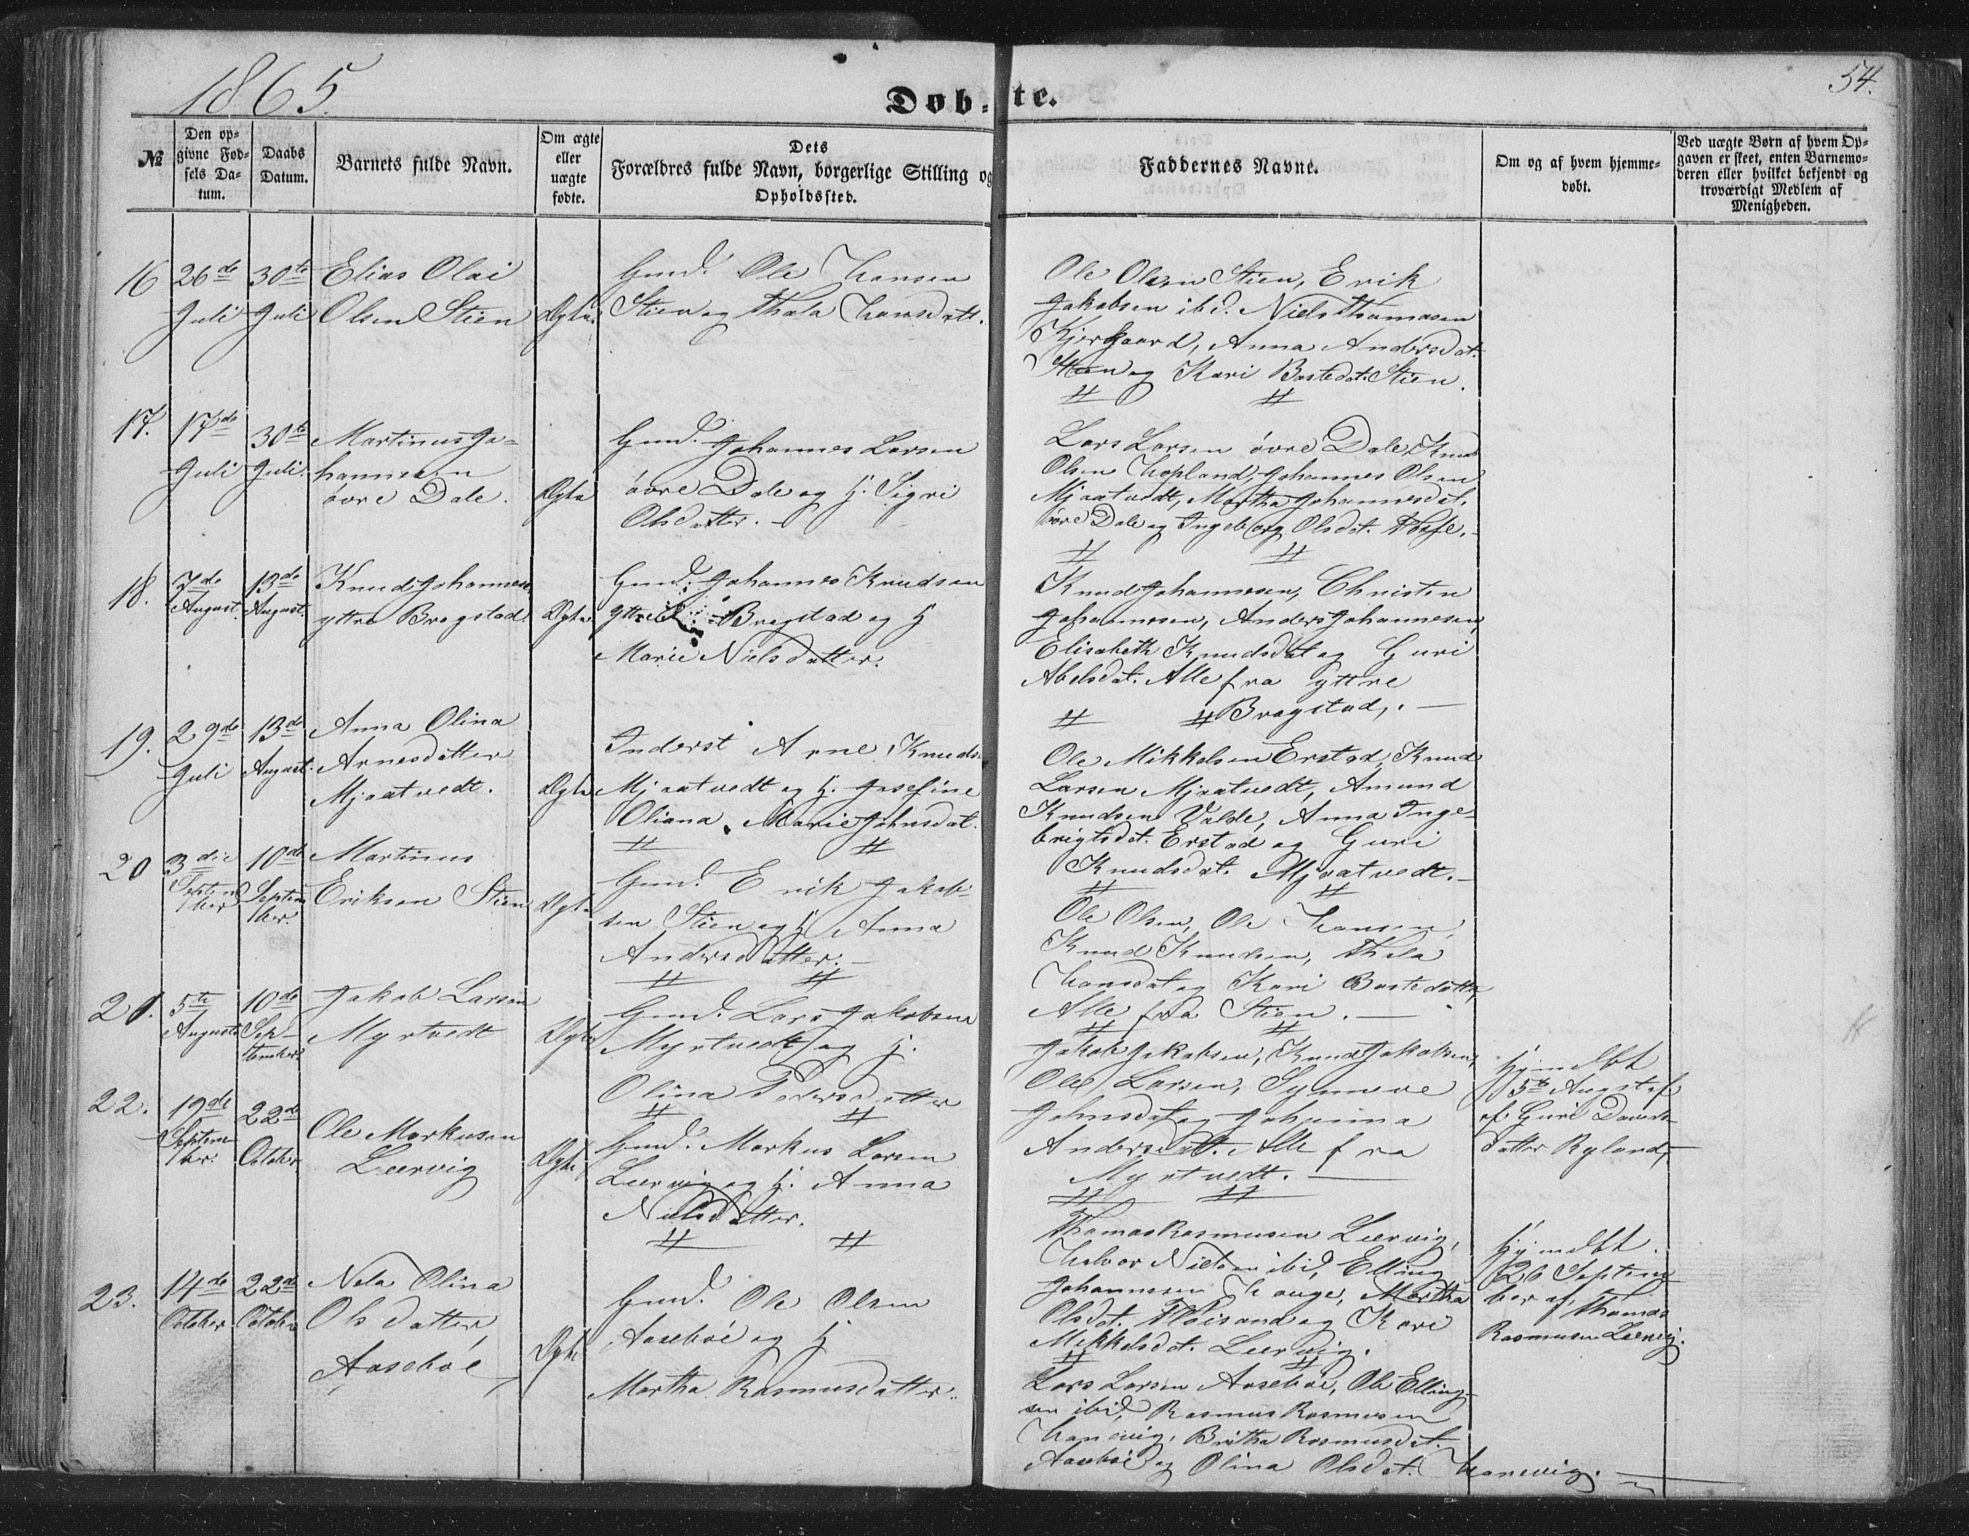 1865.
54.
Døb-te.
№
Den op-
givne Fød-
sels Da-
tum.
Daabs
Datum.
Barnets fulde Navn.
Om ægte
eller
uægte
fødte.
Dets
Forældres fulde Navn, borgerlige Stilling og
Opholdssted.
Faddernes Navne.
Om og af hvem hjemme-
døbt.
Ved uægte Børn af hvem Op-
gaven er skeet, enten Barnemo-
deren eller hvilket bekjendt og
troværdigt Medlem af
Menigheden.
16
26de
Juli
30te
Juli
Elias Olai
Olsen Stien
Ægte.
Gmd. Ole Hansen
Stien og Thala Hansdatt.
Ole Olsen Stien, Erik
Jakobsen ibid. Niels Thomasen
Kjergaard, Anna Andersdat.
Stien og Kari Bastedat. Stien.
17.
17de
Juli
30te
Juli.
Martinus Jo-
hannesen
övre Dale.
Ægte
Gmd. Johannes Larsen
övre Dale og H. Sigri
Olsdatter.
Lars Larsen övre Dale, Knud
Olsen Hopland, Johannes Olsen
Mjaatvedt, Martha Johannesdat.
övre Dale og Ingeborg Olsdat.
18.
7de
August.
13de
August.
Knud Johannesen
yttre Bragstad
Ægte
Gmd. Johannes Knudsen
yttre Bragstad og H
Marie Nielsdatter.
Knud Johannesen, Christen
Johannesen, Anders Johannesen,
Elisabeth Knudsdat og Guri
Abelsdat. Alle fra yttre
Bragstad.
19.
29de
Juli
13de
August.
Anna Olina
Arnesdatter
Mjaatvedt.
Ægte
Inderst Arne Knuds.
Mjaatvedt og H. Josefine
Oliana Marie Johnsdat.
Ole Mikkelsen Erstad, Knud
Larsen Mjaatvedt, Amund
Knudsen Valde, Anna Inge-
brigtsdat. Erstad og Guri
Knudsdat. Mjaatvedt.
20
3die
Septem
ber
10de
Septem
ber.
Martinus
Eriksen Stien
Ægte
Gmd. Erik Jakob-
sen Stien og H Anna
Andersdatter.
Ole Olsen, Ole Hansen,
Knud Knudsen, Thala
Hansdat og Kari Bastedatter,
Alle fra Stien.
21.
5te
August
10de
Sep-
tember
Jakob Larsen
Myrtvedt
Ægte
Gmd. Lars Jakobsen
Myrtvedt og H.
Olina Pedersdatter
Jakob Jakobsen, Knud Jakobsen,
Ole Larsen, Synneve
Johnsdat og Johanna
Andersdatt. Alle fra
Myrtvedt.
Hjemdbt
5te August
af Guri Davids
datter Ryland,
22.
19de
Septem
ber.
22de
October
Ole Markusen
Leervig
Ægte
Gmd. Markus Larsen
Leervig og H. Anna
Nielsdatter.
Thomas Rasmusen Leervig,
Halvor Nielsen ibid, Elling
Johannesen Hauge, Martha
Olsdat. Flöisand og Kari
Mikkelsdat. Leervig.
Hjemdbt.
26 Septem
ber af Thomas
Rasmusen Leervig.
23.
14de
October
22de
October
Nela Olina
Olsdatter
Aasebøe
Ægte
Gmd. Ole Olsen
Aasebøe og H
Martha Rasmusdatter.
Lars Larsen Aasebøe, Ole Elling-
sen ibid, Rasmus Rasmusen
Hanevig, Britha Rasmusdat.
Aasebøe og Olina Olsdat. Hanevig.